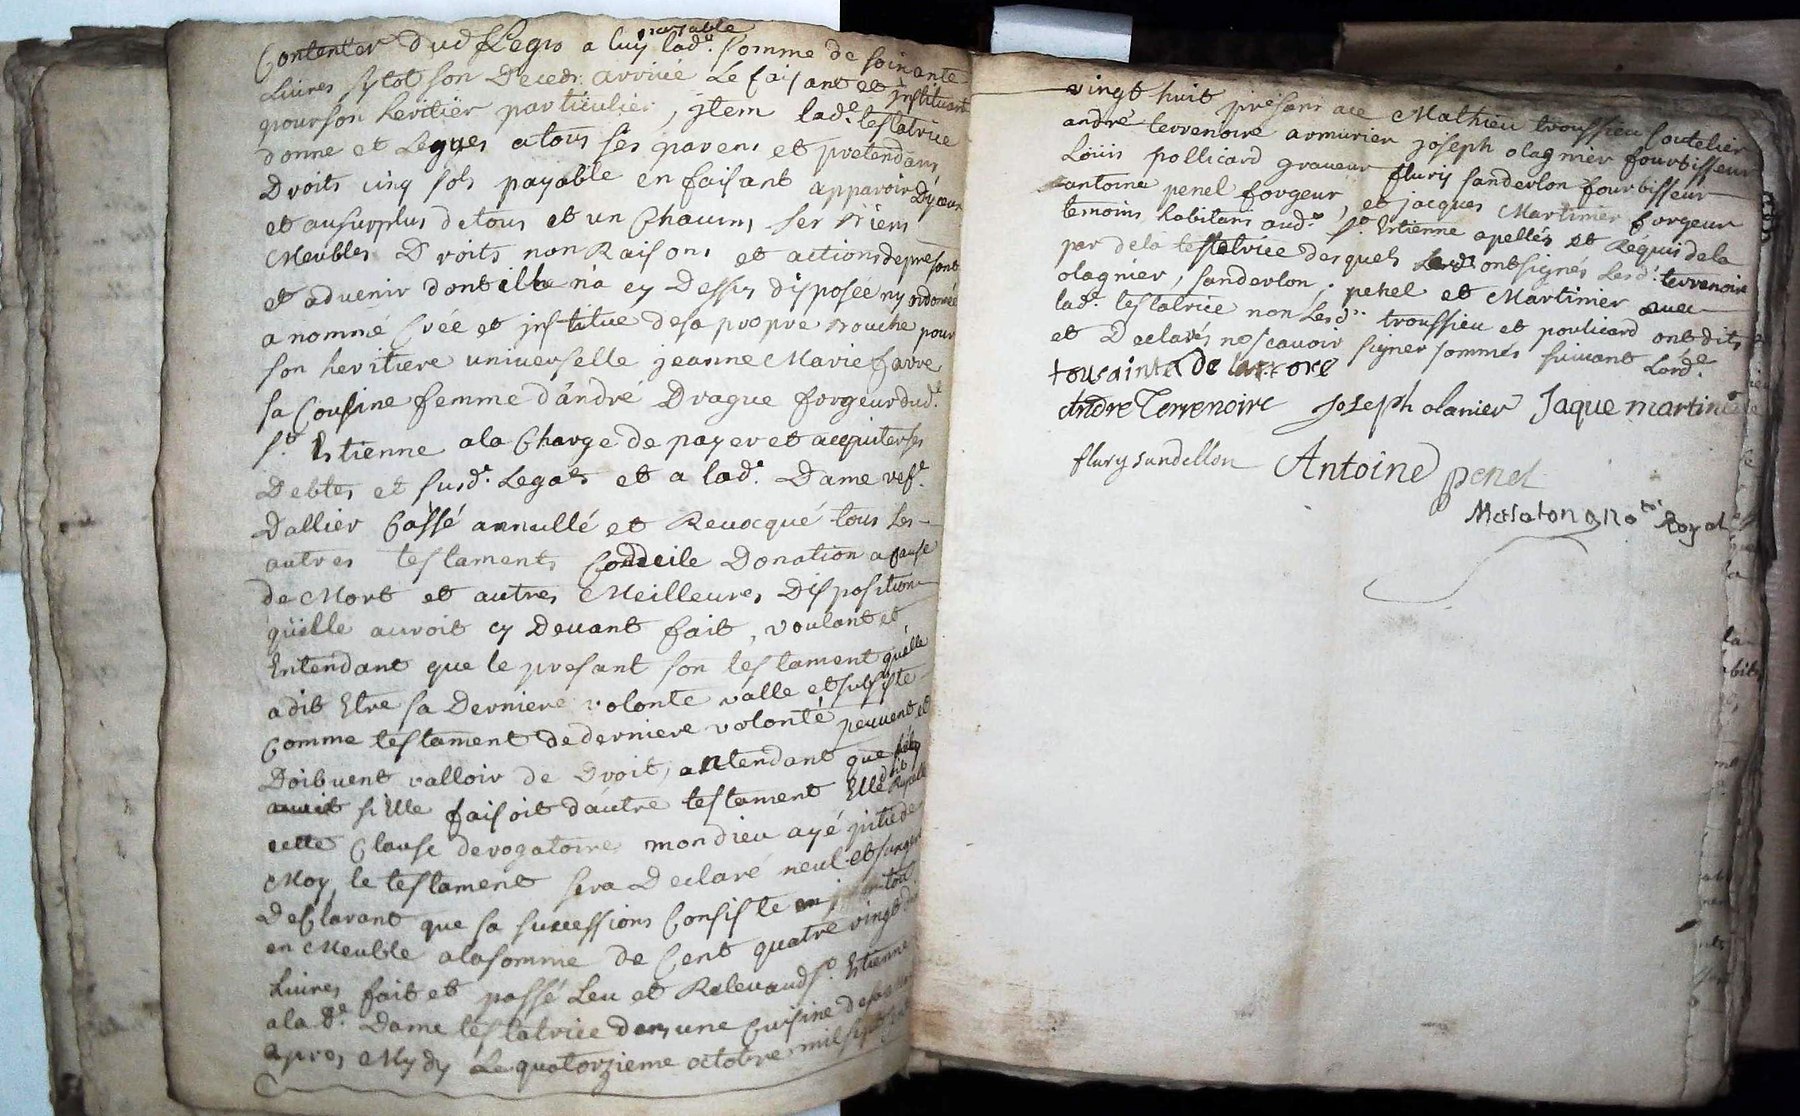 Contenter dud. Legs a luy payable lad.e somme de soixante
Livres sytot son Deceds arrivé Le faisant et jnstituant
pour son heritier particulier, jtem lad.e testatrice
donne et Legues atous ses parens et pretendans
Droits cinq sols payable en faisant apparoir
et ausurplus detous et un Chacuns ses Biens
Meubles Droits nons Raisons et actions depresant
et advenir dont elle na cy Dessus disposée ny ordonnée
a nommé Créé et jnstitue desa propre Bouche pour
son heritiere universelle jeanne Marie favre
sa Cousine femme d'andré Drague forgeur dud.t
S.t Estienne ala Charge de payer et acquiter ses
Debtes et susd.s Legats et a lad.e Dame vef.e
Dallier Cassé annullé et Revocqué tous Les
autres testaments Coddecile Donation a cause
de Mort et autres Meilleures Disposition
quelle auroit cy Devant fait, voulant et
Entendant que le presant son testament quelle
adit Etre sa Derniere volonte valle et subsiste
Comme testament de derniere volonté peuvent et
Doibvent valloir de Droit, antendant que
sille faisoit dautre testament Elle
cette Clause derogatoire mon dieu ayé pitié de
Moy, le testament sera Declaré neul et
Desclarant que sa successions Consiste en tout
en Meuble alasomme de Cent quatre vingt
Livres fait et passé Leu et Relevaud. S.t Estienne
ala d.e Dame testatrice dans une Cuisine desa
apres Mydy Le quatorzieme octobre mil sept
vingt huit presans ace Mathieu troussieu Coutelier
andré terrenoire armurier joseph olagnier fourbisseur
Loüis pollicard graveur fluris sanderlon fourbisseur
antoine penel forgeur, et jacques Martinier forgeur
temoins habitans aud.t S.t Estienne apellés et Requis dela
par dela testatrice desquels ont signés Lesd.t terrenoire
olagnier, sanderlon, penel et Martinier avec
lad.e testatrice non Lesd.ts troussieu et poulicard ont dits
et Declarés ne scavoir signer sommés suivant Lord.e
tousainta De
Andre Terrenoire Joseph olanier Jaque martinie
flury sandellon Antoine penel
Royal